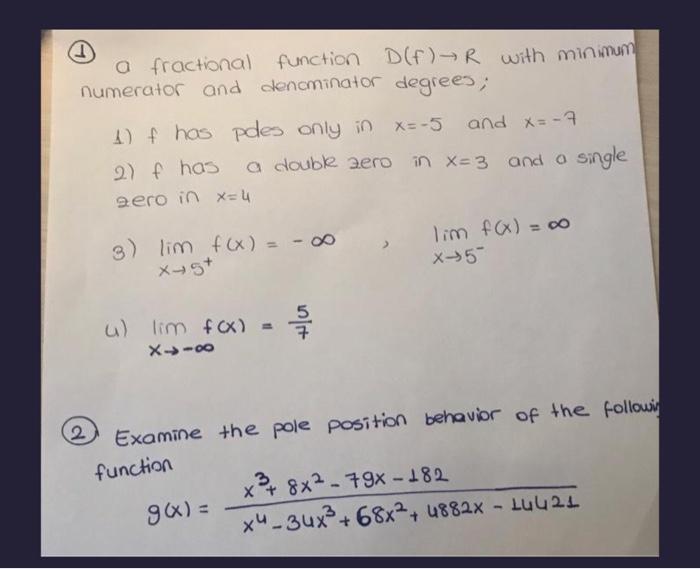 ① a fractional function D(f)→R with minimum
numerator and denominator degrees;
1) f has poles only in x=-5 and x=-7
2) f has a double zero in x=3 and a single
zero in x=4
3) lim f(x) = -∞ , lim f(x) = ∞
x→5⁺ x→5⁻
4) lim f(x) = 5/7
x→-∞
② Examine the pole position behavior of the followin
function
g(x) = (x³ + 8x² - 79x - 182) / (x⁴ - 34x³ + 68x² + 4882x - 14421)